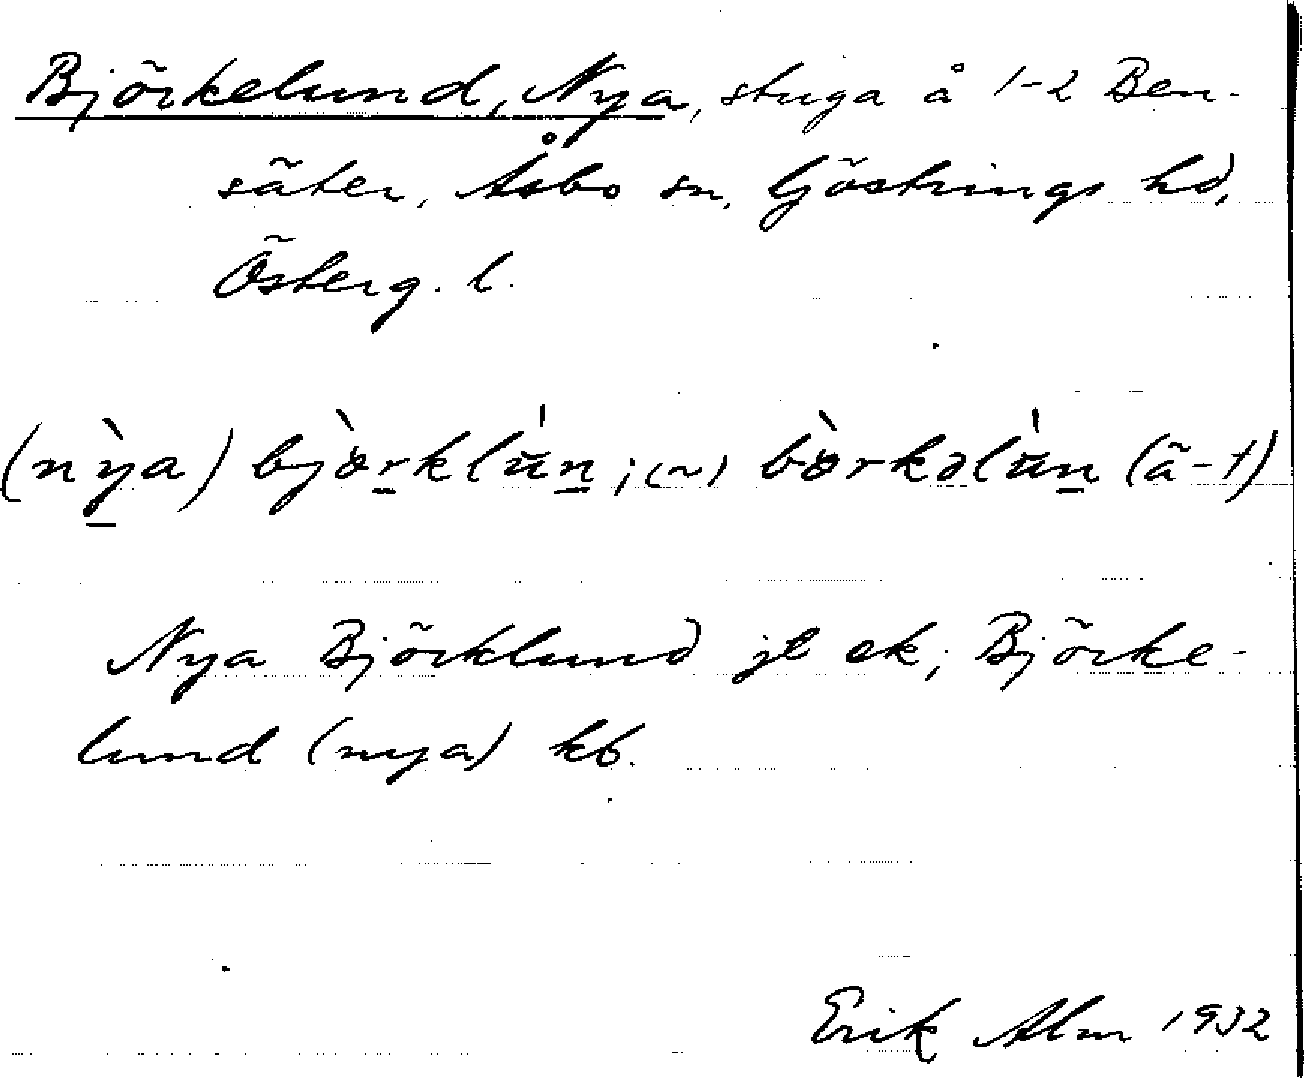 Björkelund, Nya, stuga å 1-2 Ben-
säter, Åsbo sn, Göstrings hd,
Österg. l.
(nỳa) bjòrklún; (~) bòrkəlún (ä-t)
Nya Björklund jt ek; Björke-
lund (nya) kb.
Erik Alm 1932